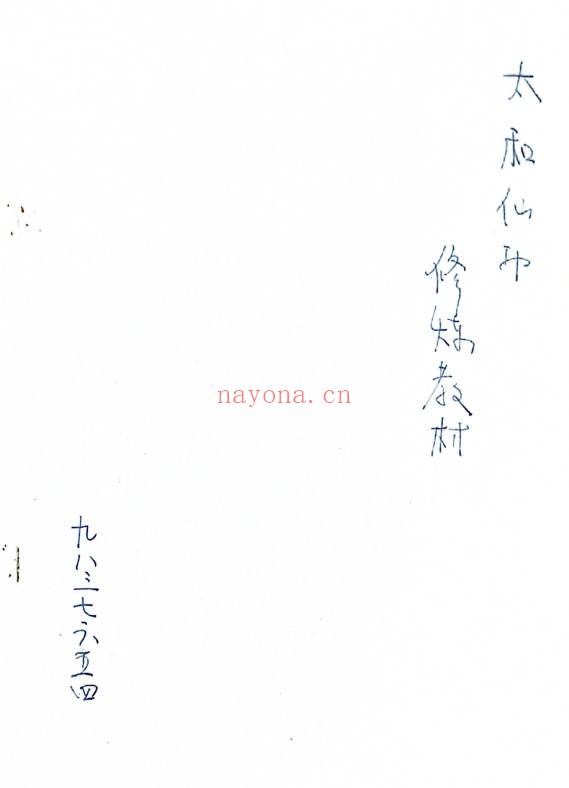 太和仙
修炼教材
九八三七六五四
nayona.cn